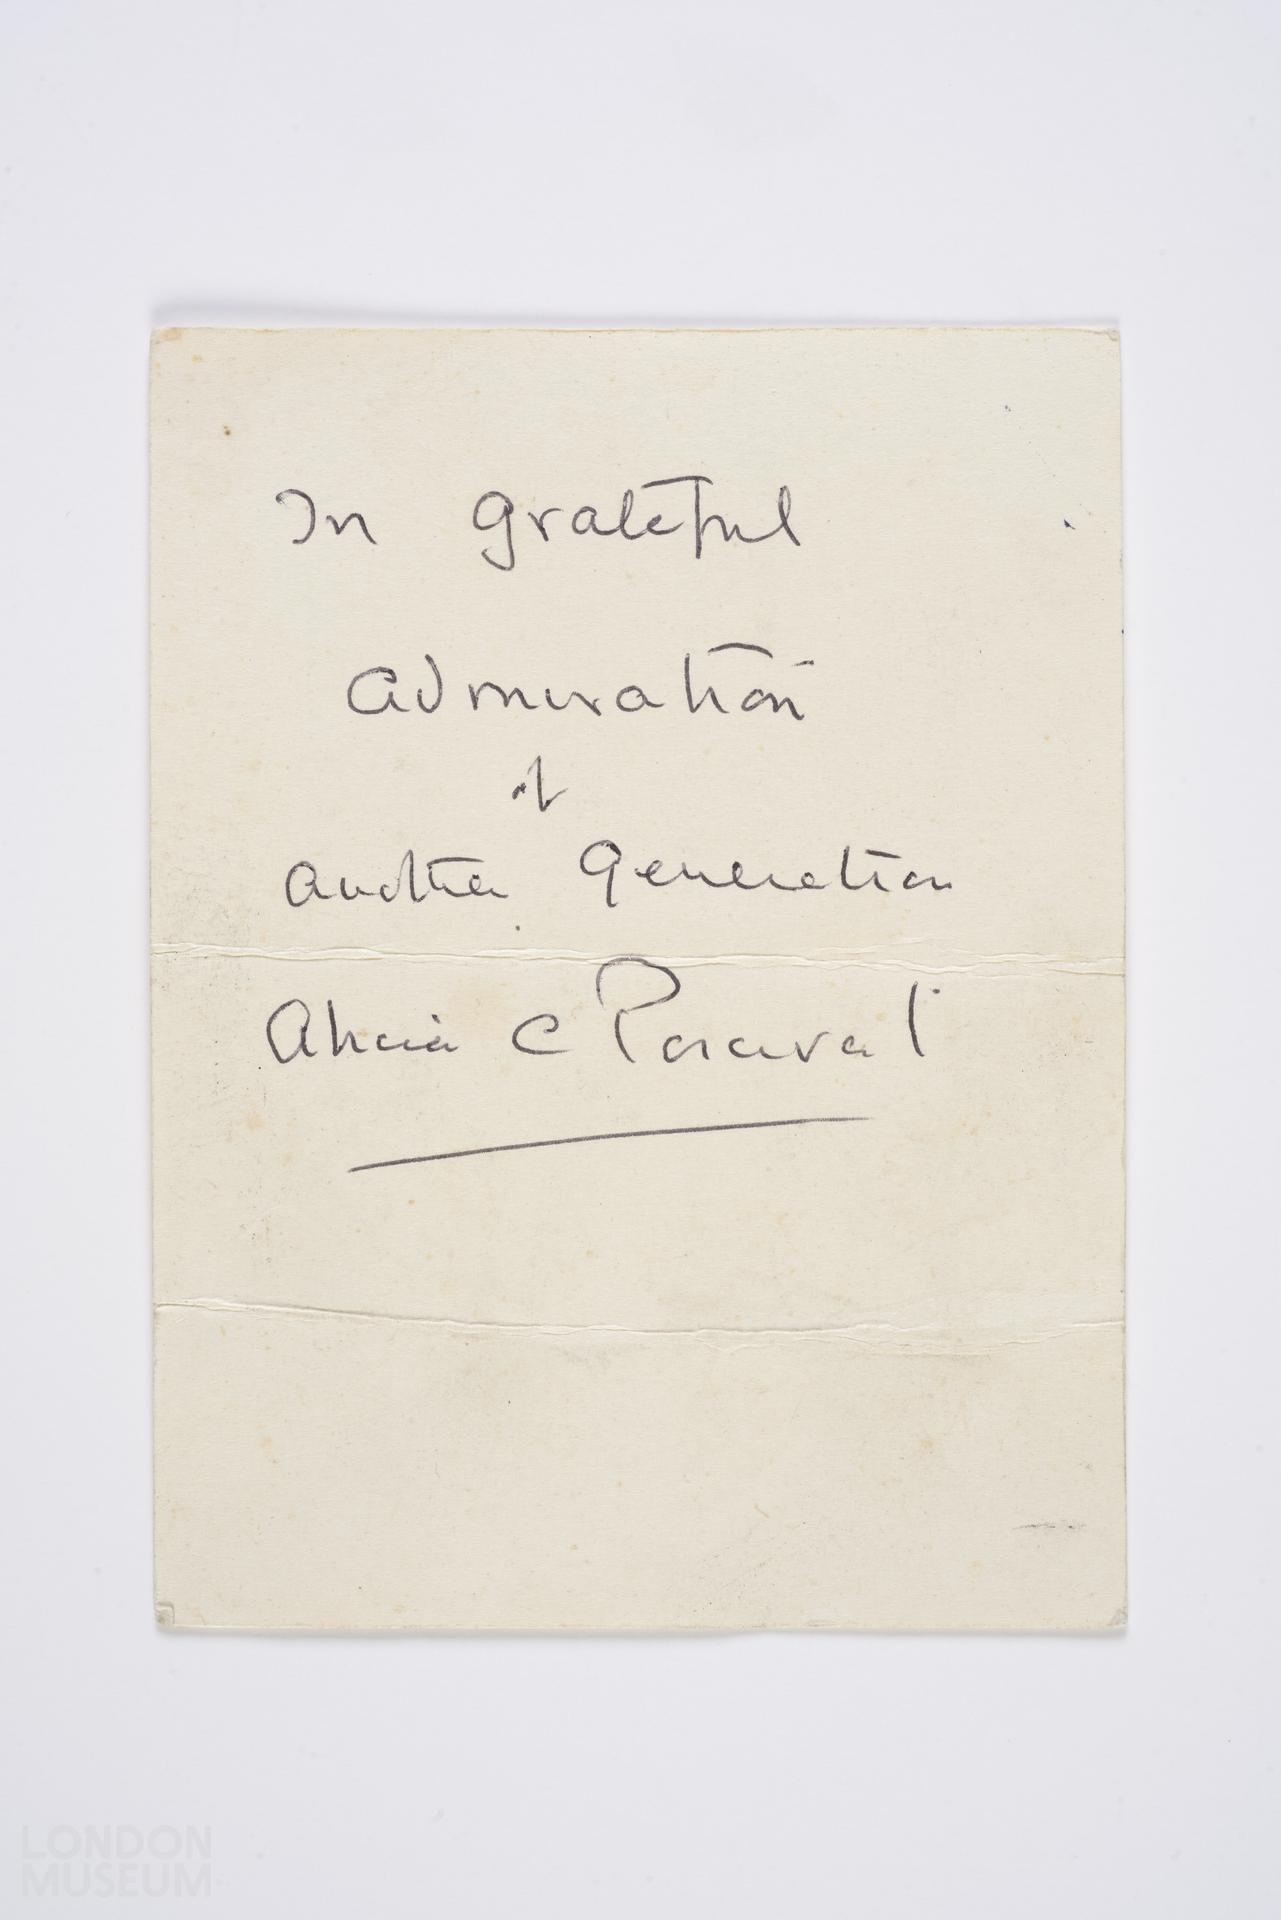 In grateful
admiration
of
another generation
Alicia C Percival
LONDON
MUSEUM